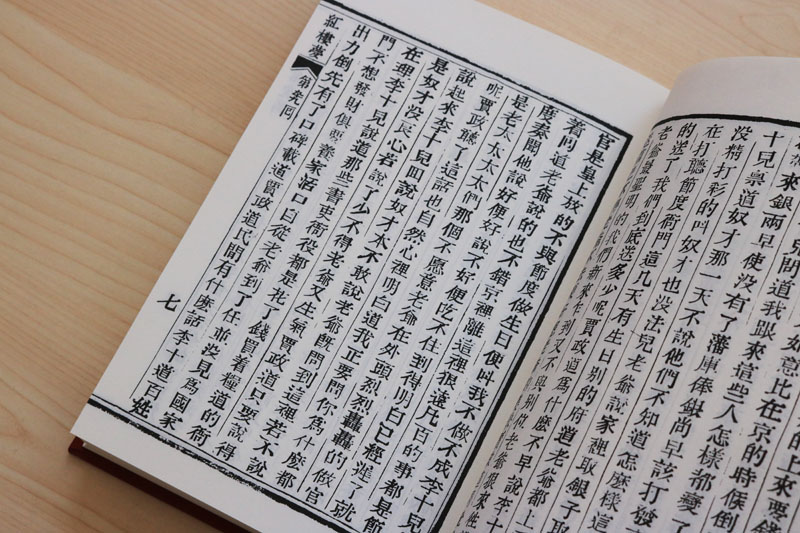 如意比在京的時候倒
見問道我跟來這些人怎樣都變了
來銀兩早使沒有了藩庫俸銀尚早該打發
十見崇道奴才那一天不說他們不知道怎麼樣這
沒精打彩的叫奴才也没法兒老爺說家裡取銀子取
在打聽節度衙門這几天有生日別的府道老爺都上
的送了我們到底送多少呢賈政道爲什麼不早說李十
老爺最聖明的我們新來乍到又不與別
官是皇上放的不與節度做生日便叫我不做不成李十兒
着問道老爺說的也不錯京裡離這裡狠遠凡百的事都是節
度奏聞他說好便好說不好便吃不住到得明白已經遲了就
是老太太太太們那個不愿意老爺在外頭烈烈轟轟的做官
呢賈政聽了這話也自然心裡明白道我正要問你爲什麼都
說起來李十兒回說奴才本不敢說老爺既問到這裡若不說
是奴才沒良心若說了少不得老爺又生氣賈政道只要說得
在理李十兒說道那些書吏衙役都是花了錢買着糧道的衙
門不想發財俱要養家活口自從老爺到了任並沒見爲國家
出力倒先有了口碑載道賈政道民間有什麼話李十道百姓
紅樓夢
七